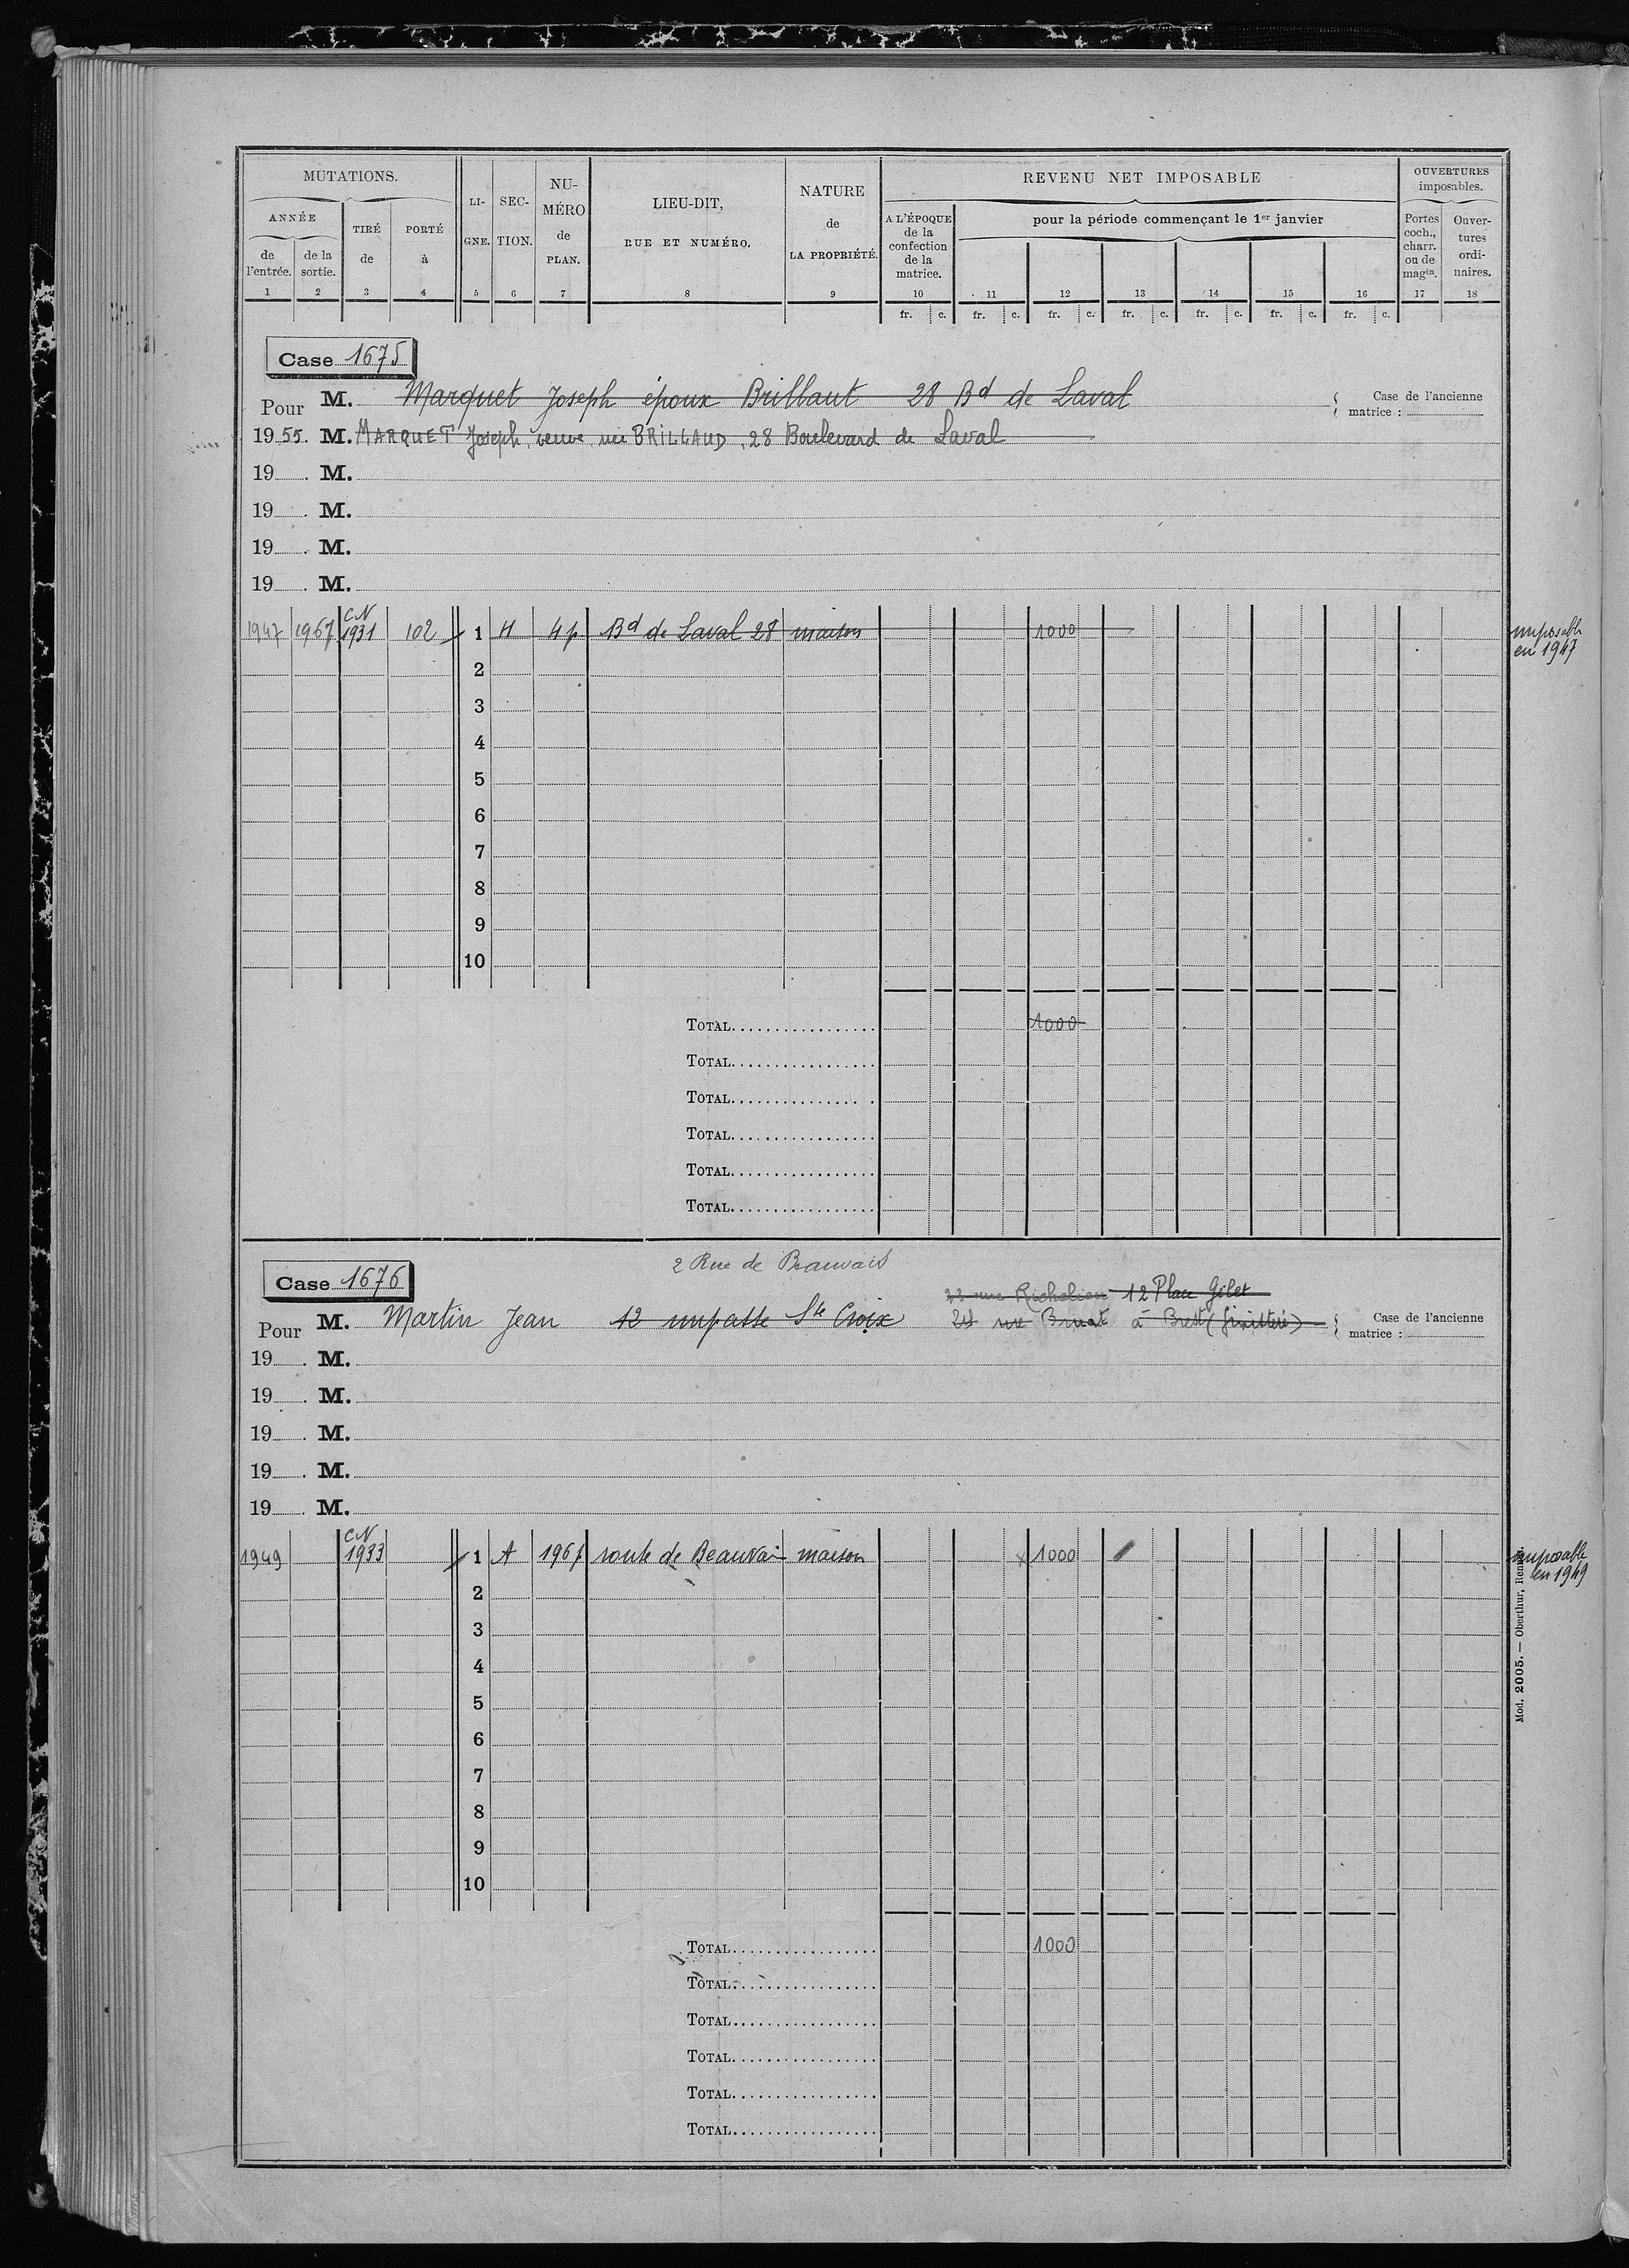 MUTATIONS.
ANNÉE
de l'entrée.
de la sortie.
TIRÉ de
PORTÉ à
LI-GNE.
SEC-TION.
NU-MÉRO de PLAN.
LIEU-DIT, RUE ET NUMÉRO.
NATURE de LA PROPRIÉTÉ.
REVENU NET IMPOSABLE
A L'ÉPOQUE de la confection de la matrice.
pour la période commençant le 1er janvier
OUVERTURES imposables.
Portes coch., charr. ou de magin.
Ouver-tures ordi-naires.
1 2 3 4 5 6 7 8 9 10 11 12 13 14 15 16 17 18
fr. c. fr. c. fr. c. fr. c. fr. c. fr. c. fr. c.
Case 1675
Pour M. Marquet Joseph époux Brillaut 28 Bd de Laval
Case de l'ancienne matrice :
1955. M. MARQUET Joseph, veuve née BRILLAUD, 28 Boulevard de Laval
19 . M.
19 . M.
19 . M.
19 . M.
1947 1967 CN 1931 102 1 H 4p Bd de Laval 28 maison 1000 imposable en 1947
2
3
4
5
6
7
8
9
10
TOTAL 1000
TOTAL
TOTAL
TOTAL
TOTAL
TOTAL
2 Rue de Beauvais
Case 1676
23 rue Richelieu 12 Place Gilet
Pour M. Martin Jean 12 impasse Ste Croix rue Bruat à Brest (finistère)
Case de l'ancienne matrice :
19 . M.
19 . M.
19 . M.
19 . M.
19 . M.
1949 CN 1933 1 A 196p route de Beauvais maison x 1000 imposable en 1949
2
3
4
5
6
7
8
9
10
TOTAL 1000
TOTAL
TOTAL
TOTAL
TOTAL
TOTAL
Mod. 2005. — Oberthur, Rennes.